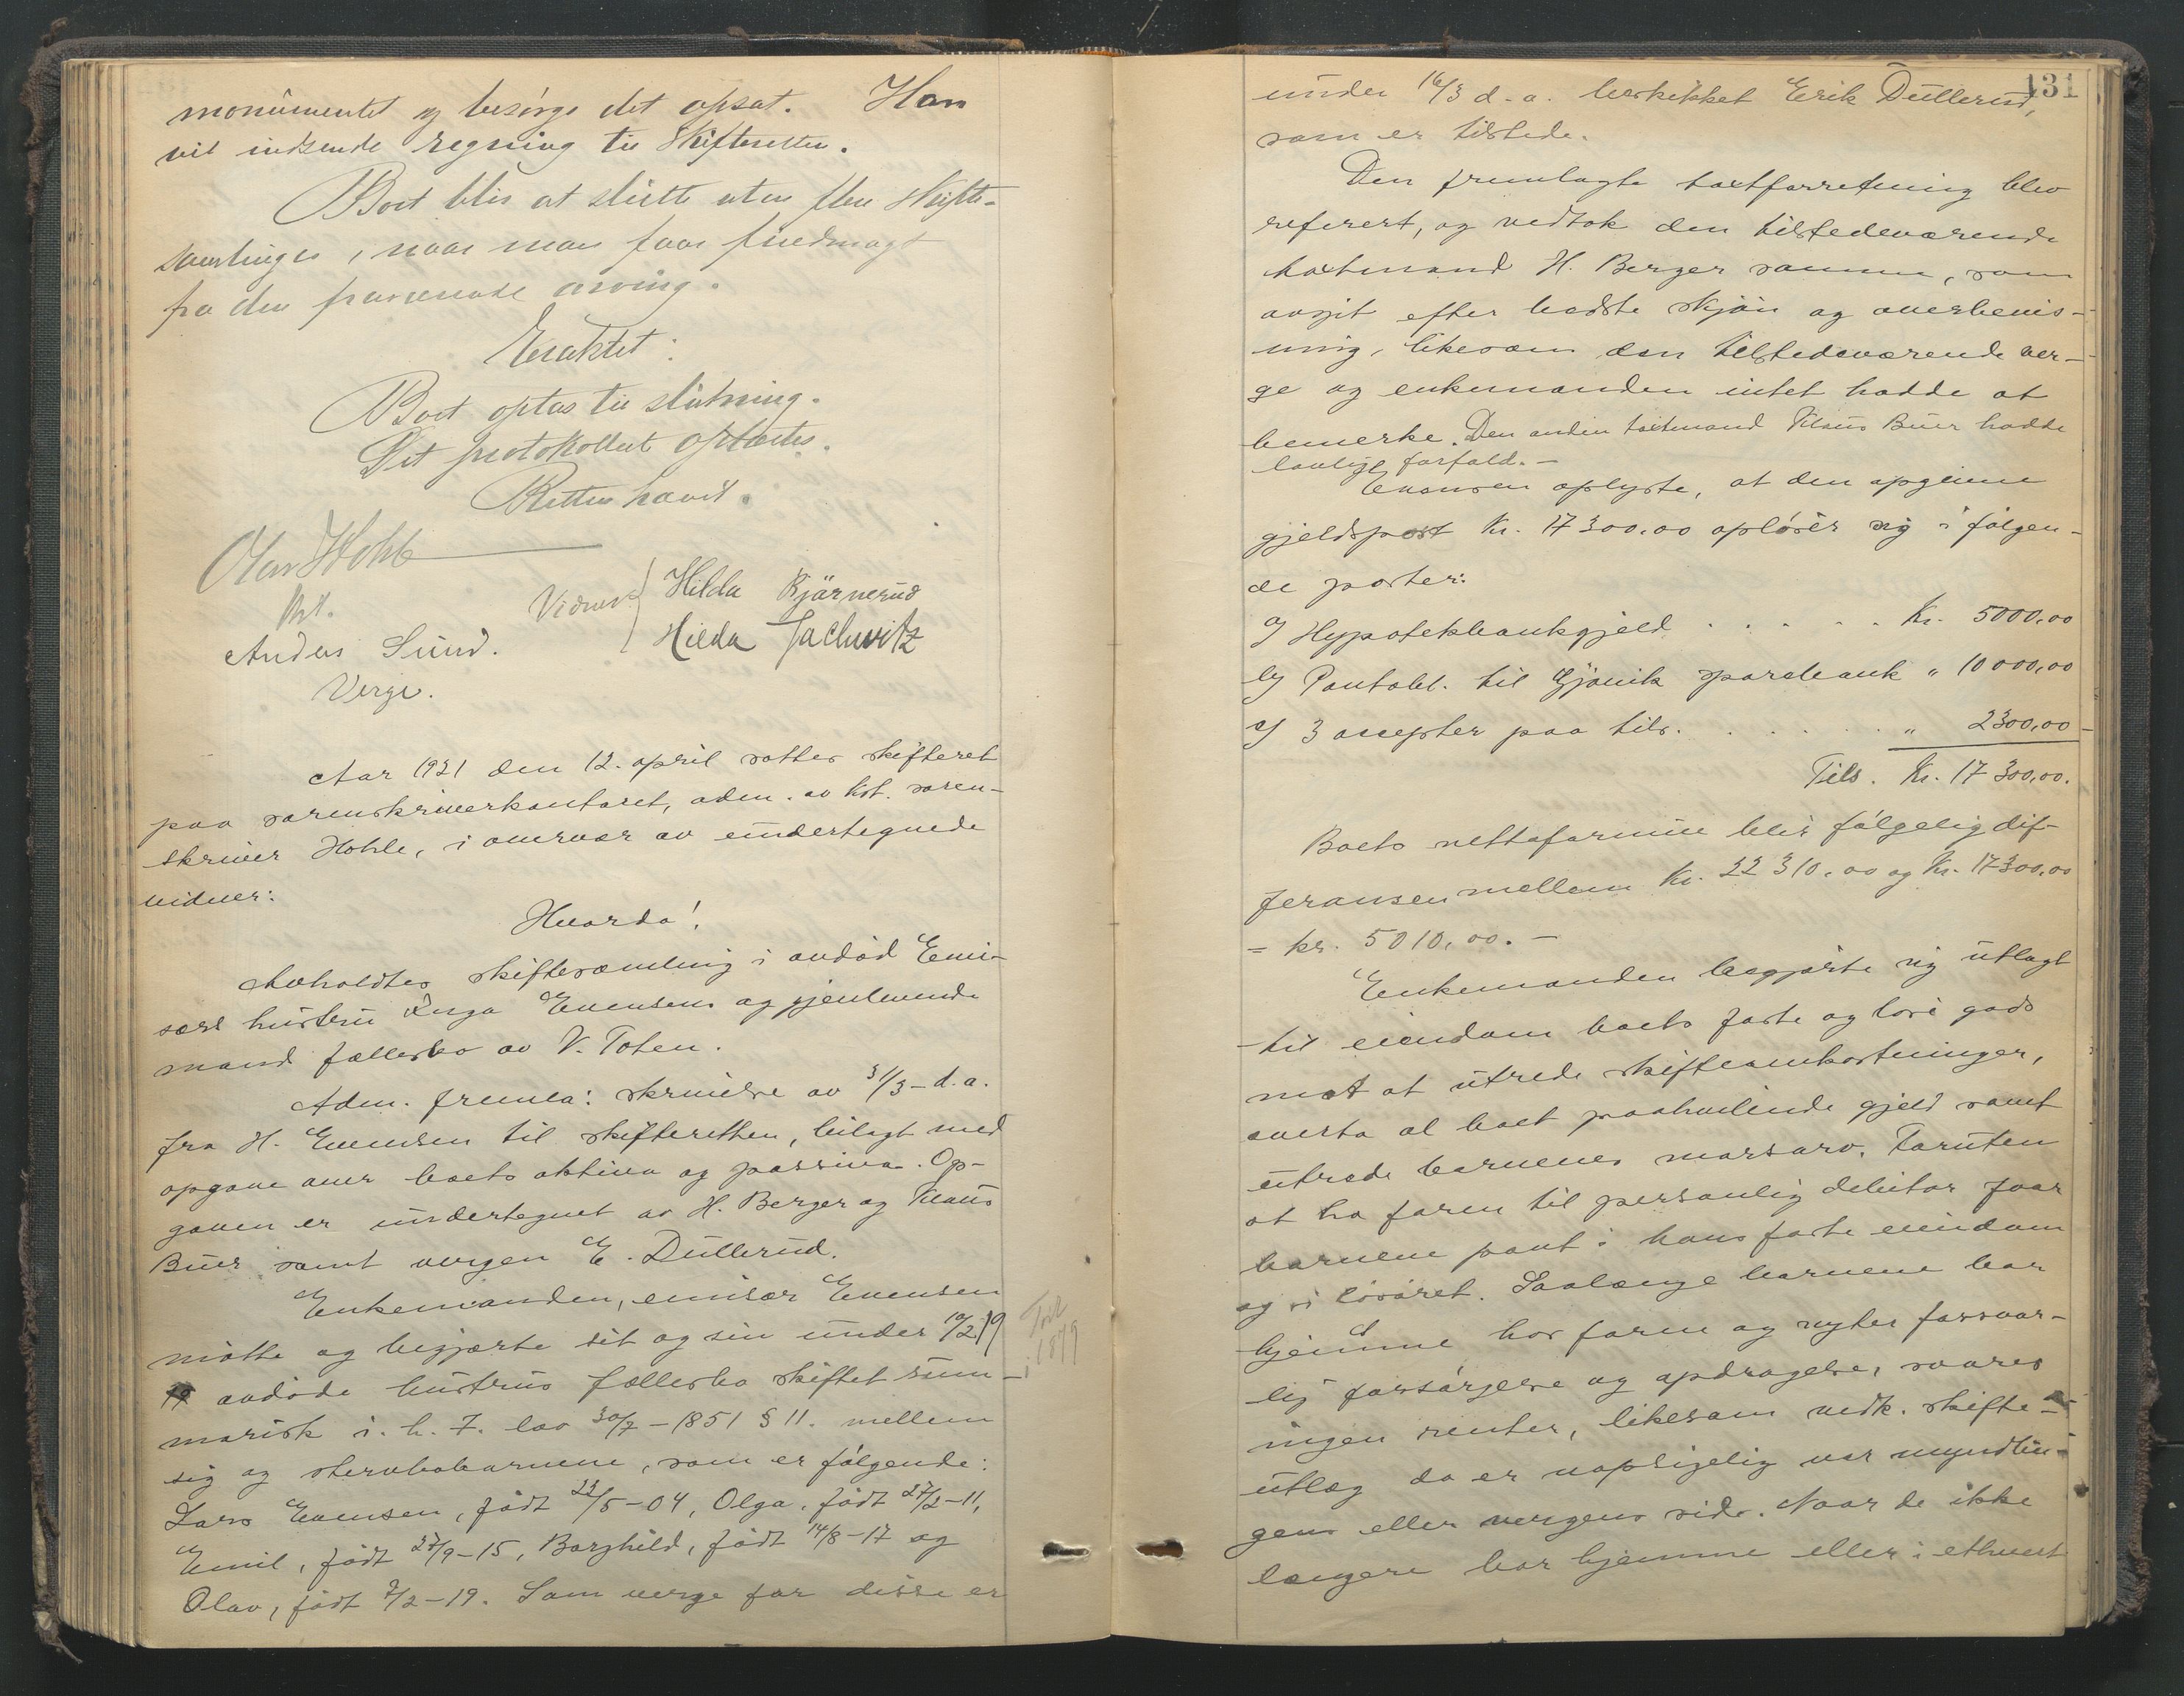 monumentet og besørge det opsat. Han
vil indsende regning til Skifteretten.
Boet blir at slutte uten flere skifte-
samlinger, naar man faar fuldmagt
fra den fraværende arving.
Eraktet:
Boet optas til slutning.
Det protokollert oplæstes.
Retten hævet.
Olav Hohle
kst.
Anders Sund.
Verge.
Vidner: Hilda Bjørnerud
Hilda Jachwitz
Aar 1921 den 12. april sattes skifteret
paa sorenskriverkontoret, adm. av kst. soren-
skriver Hohle, i overvær av undertegnede
vidner:
Hvorda!
Avholdtes skiftesamling i avdød Emi-
særs hustru Inga Evensens og gjenlevende
mand fællesbo av V. Toten.
Adm. fremla: skrivelse av 31/3- d.a.
fra H. Evensen til skifteretten, bilagt med
opgave over boets aktiva og passiva. Op-
gaven er undertegnet av H. Berger og Klaus
Buer samt vergen E. Dullerud.
Enkemanden, emisær Evensen
Født
1879
møtte og begjærte sit og sin under 10/2 19
avdøde hustrus fællesbo skiftet sum-
marisk i. h. t. lov 30/7-1851 § 11. mellem
sig og stervbobarnene, som er følgende:
Lars Evensen, født 23/5-04, Olga, født 27/2-11,
Emil, født 27/9-15, Borghild, født 14/8-17 og
Olav, født 7/2-19. Som verge for disse er
131
under 16/3 d.a. beskikket Erik Dullerud,
som er tilstede.
Den fremlagte takstforretning blev
referert, og vedtok den tilstedeværende
takstmand H. Berger samme, som
avgit efter bedste skjøn og overbevis-
ning, likesom den tilstedeværende ver-
ge og enkemanden intet hadde at
bemerke. Den anden takstmand Klaus Buer hadde
lovlig forfald.-
Evensen oplyste, at den opgivne
gjeldspost kr. 17300,00 opløser sig i følgen-
de poster:
a) Hypotekbankgjeld . . . . . kr. 5000,00
b) Pantobl. til Gjøvik sparebank " 10000,00
c) 3 accepter paa tils. . . . . . . " 2300,00
Tils. kr. 17300,00.
Boets nettoformue blir følgelig dif-
feransen mellem kr. 22310,00 og kr. 17300,00
= kr. 5010,00.-
Enkemanden begjærte sig utlagt
til eiendom boets faste og løse gods
mot at utrede skifteomkostninger,
overta al boet paahvilende gjeld samt
utrede barnenes morsarv. Foruten
at ha faren til personlig debitor faar
barnene pant i hans faste eiendom
og i løsøret. Saalænge barnene bor
hjemme hos faren og nyter forsvar-
lig forsørgelse og opdragelse, svares
ingen renter, likesom vedk. skifte-
utlæg da er uopsigelig var myndlin-
gens eller vergens side. Naar de ikke
længere bor hjemme eller i ethvert